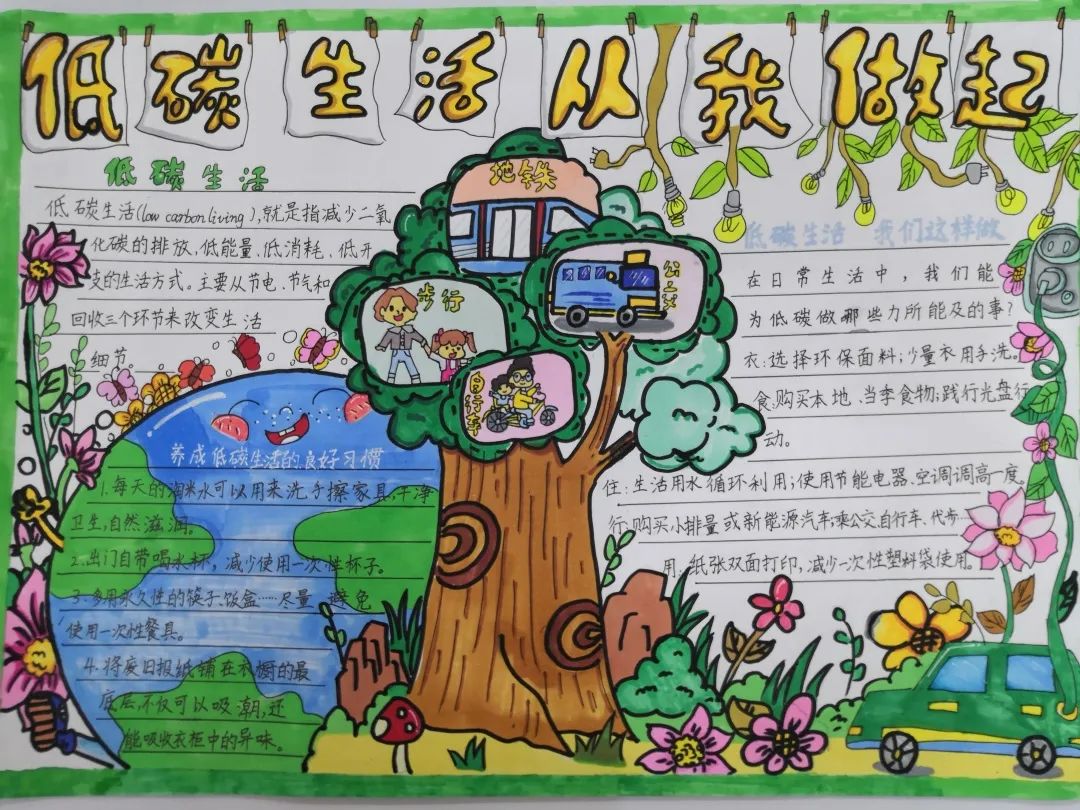 低碳生活从我做起
低碳生活
低碳生活(low carbon living),就是指减少二氧
化碳的排放,低能量、低消耗、低开
支的生活方式。主要从节电、节气和
回收三个环节来改变生活
细节。
地铁
步行
公交
自行车
养成低碳生活的良好习惯
1.每天的淘米水可以用来洗手擦家具,干净
卫生,自然滋润。
2.出门自带喝水杯,减少使用一次性杯子。
3.多用永久性的筷子、饭盒……尽量避免
使用一次性餐具。
4.将废旧报纸铺在衣橱的最
底层,不仅可以吸潮,还
能吸收衣柜中的异味。
低碳生活 我们这样做
在日常生活中,我们能
为低碳做哪些力所能及的事?
衣:选择环保面料;少量衣用手洗。
食:购买本地、当季食物;践行光盘行
动。
住:生活用水循环利用;使用节能电器、空调调高一度。
行:购买小排量或新能源汽车;乘公交、自行车、代步…
用:纸张双面打印,减少一次性塑料袋使用。